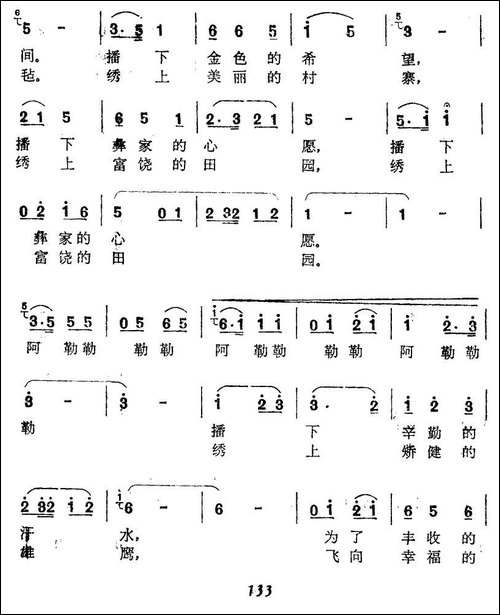 6 5 - | 3·5 1 | 6 6 5 | i 5 | 5 3 - |
间。 播 下 金 色 的 希 望,
毡。 绣 上 美 丽 的 村 寨,
2 1 5 | 6 5 1 | 2·3 2 1 | 5 - | 5·i i |
播 下 彝 家 的 心 愿, 播 下
绣 上 富 饶 的 田 园, 绣 上
0 2 i 6 | 5 0 1 | 2 32 1 2 | 1 - | 1 - |
彝 家 的 心 愿。
富 饶 的 田 园。
5 3·5 5 5 | 0 5 6 5 | i 6·i i i | 0 i 2 i | i 2·3 |
阿 勒 勒 勒 勒 阿 勒 勒 勒 勒 阿 勒
3 - | 3 - | i 2 3 | 3· 2 | i 2 3 |
勒 播 下 辛 勤 的
绣 上 矫 健 的
2 32 i 2 | i 6 - | 6 - | 0 i 2 i | 6 5 6 |
汗 水, 为 了 丰 收 的
雄 鹰, 飞 向 幸 福 的
133